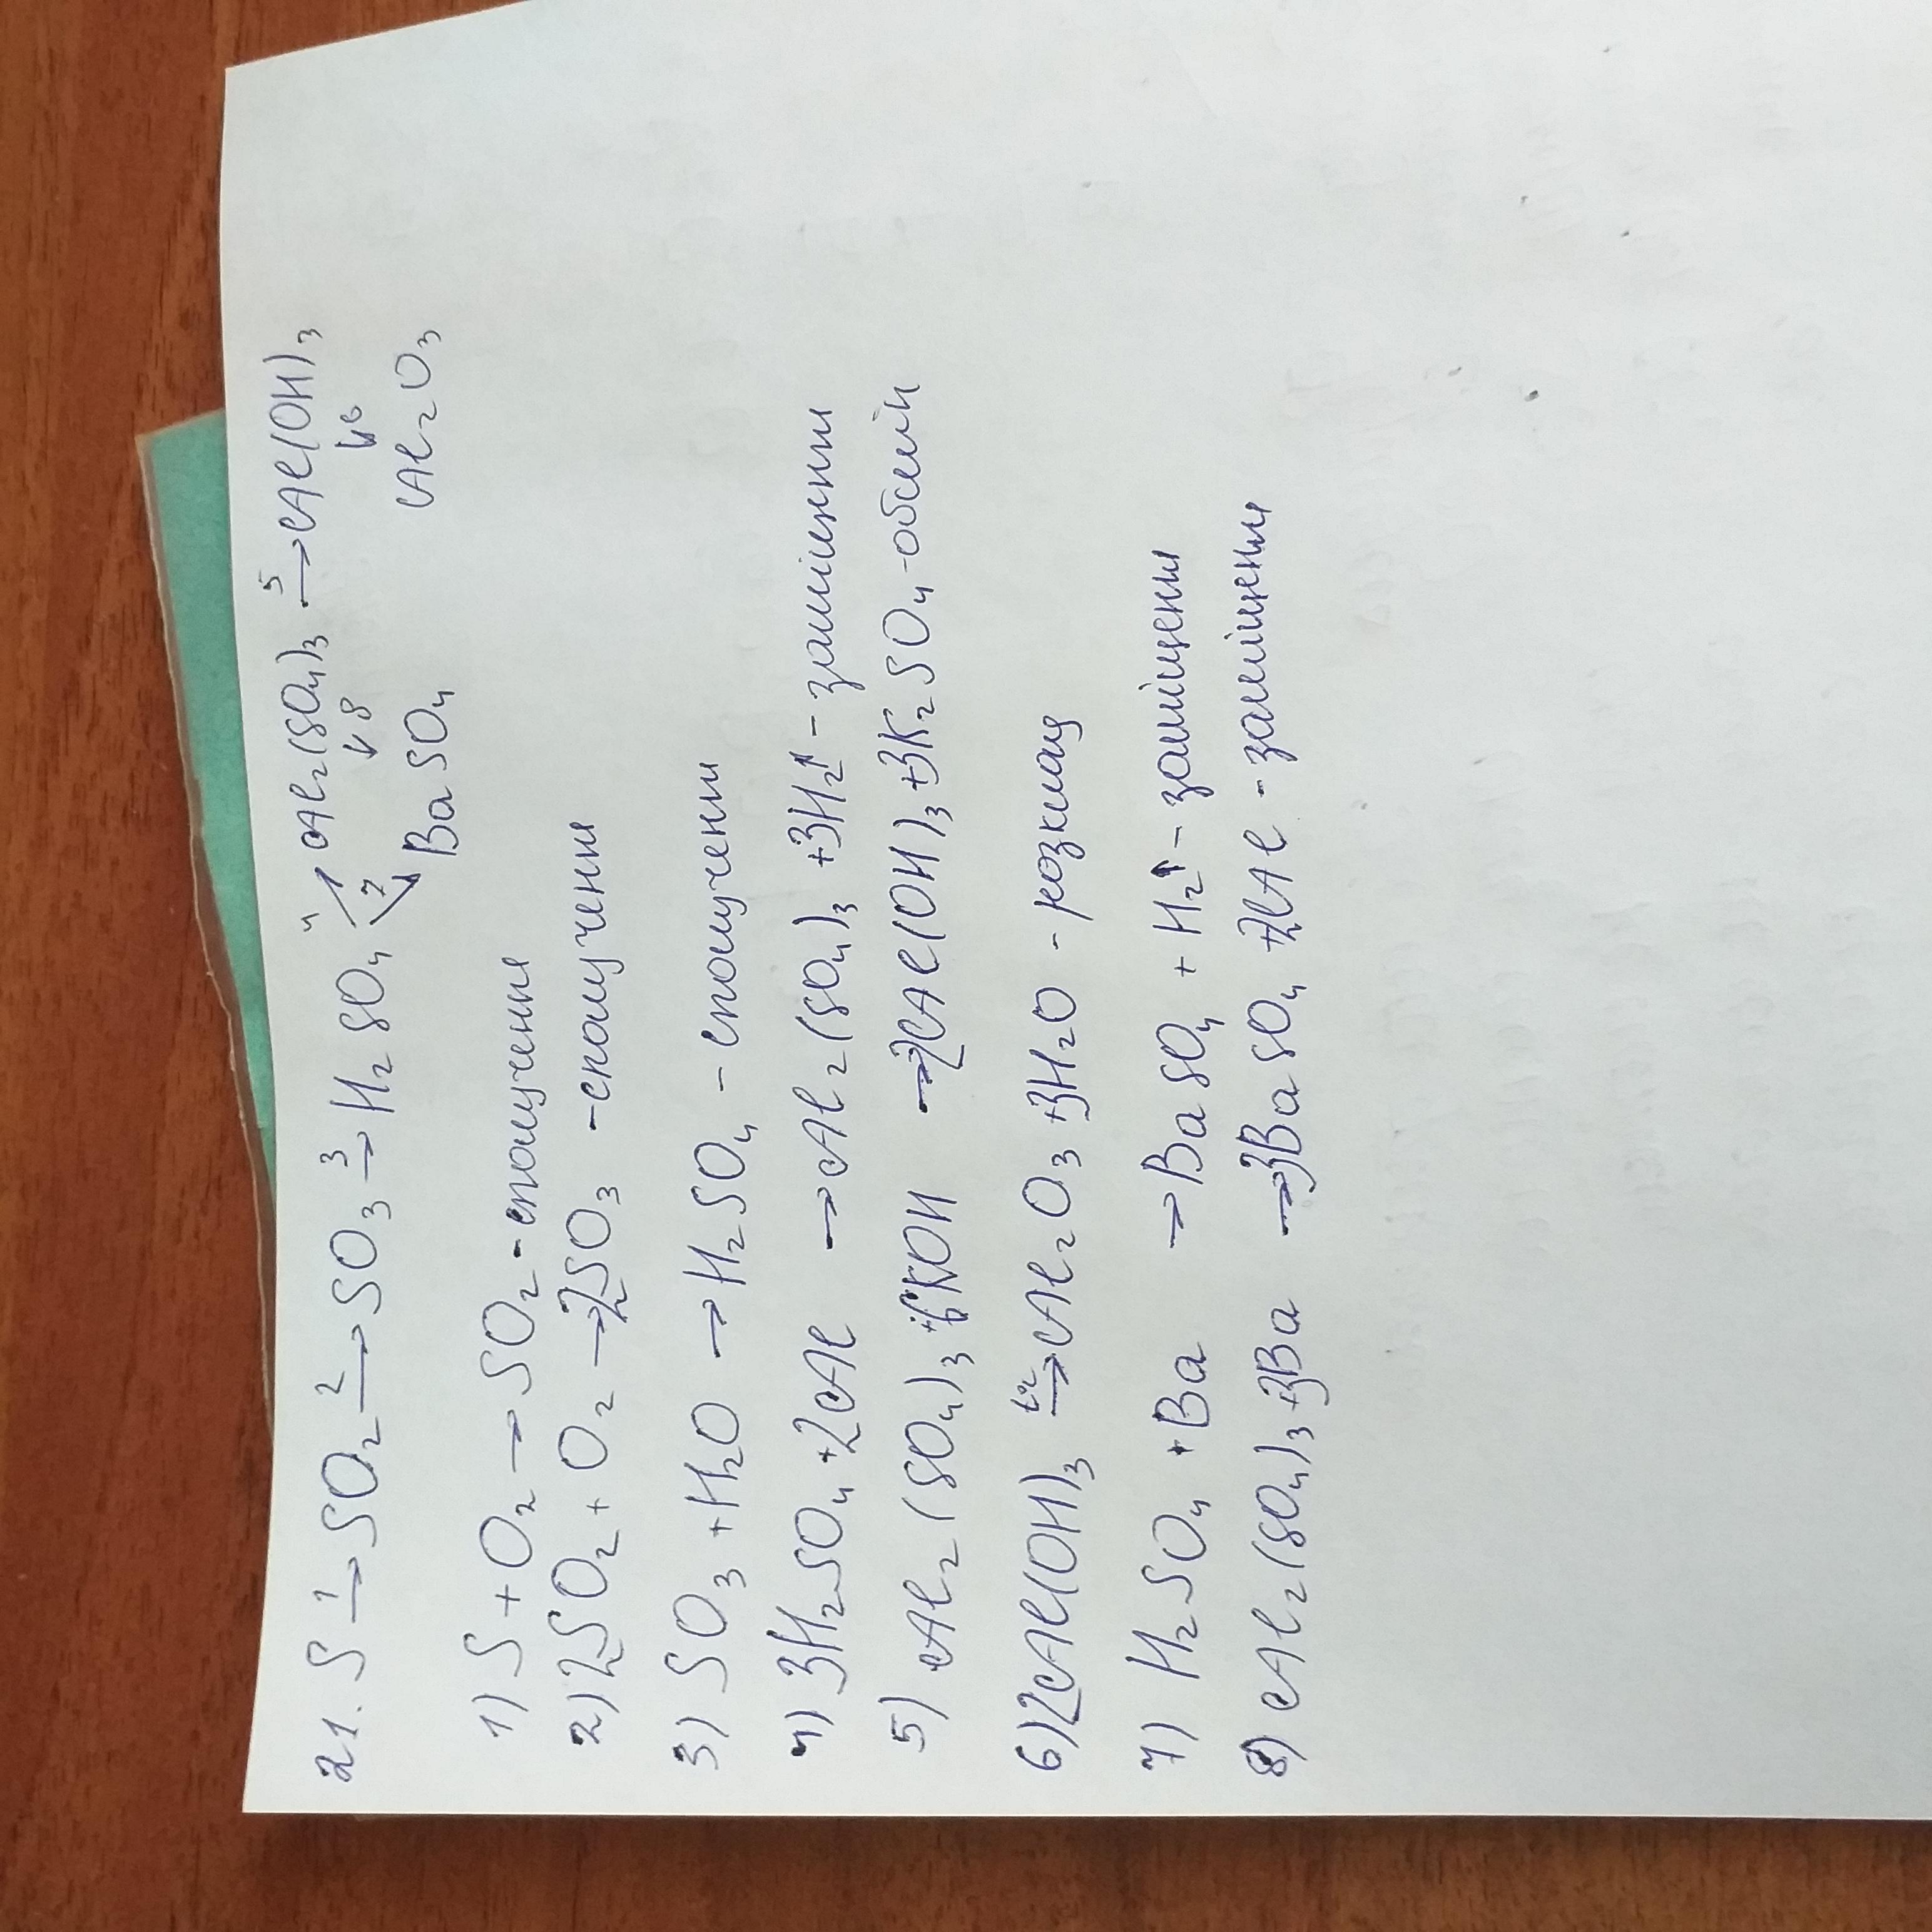 21. S →¹ SO₂ →² SO₃ →³ H₂SO₄ →⁴ Al₂(SO₄)₃ →⁵ Al(OH)₃
↘7 ↓8 ↓6
BaSO₄ Al₂O₃
1) S + O₂ → SO₂ - сполучення
2) 2SO₂ + O₂ → 2SO₃ - сполучення
3) SO₃ + H₂O → H₂SO₄ - сполучення
4) 3H₂SO₄ + 2Al → Al₂(SO₄)₃ + 3H₂↑ - заміщення
5) Al₂(SO₄)₃ + 6KOH → 2Al(OH)₃ + 3K₂SO₄ - обмін
6) 2Al(OH)₃ →t° Al₂O₃ + 3H₂O - розклад
7) H₂SO₄ + Ba → BaSO₄ + H₂↑ - заміщення
8) Al₂(SO₄)₃ + 3Ba → 3BaSO₄ + 2Al - заміщення